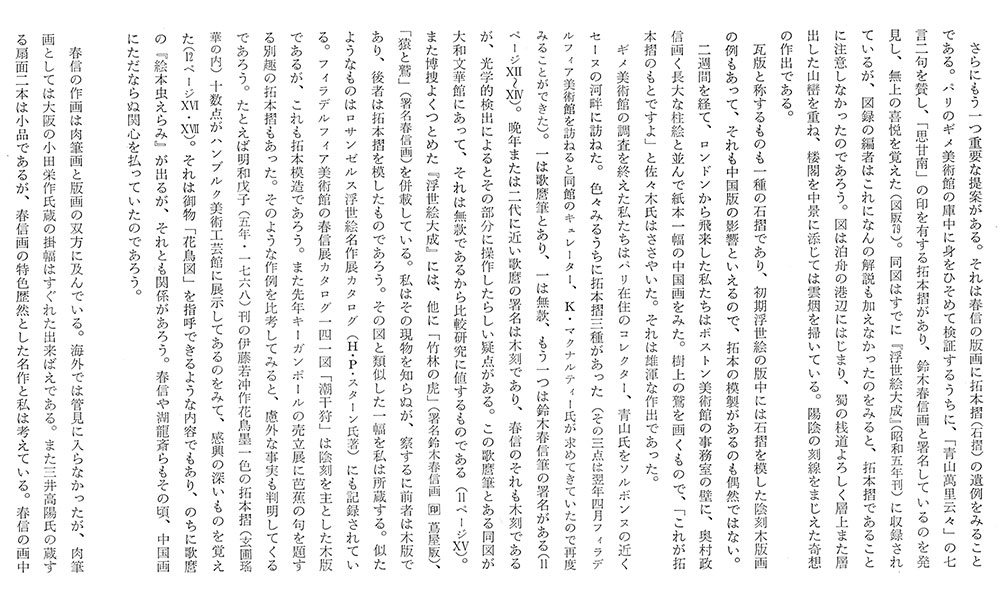 さらにもう一つ重要な提案がある。それは春信の版画に拓本摺（石摺）の遺例をみること
である。パリのギメ美術館の庫中に身をひそめて検証するうちに、「青山萬里云々」の七
言二句を賛し、「思甘南」の印を有する拓本摺があり、鈴木春信画と署名しているのを発
見し、無上の喜悦を覚えた（図版79）。同図はすでに『浮世絵大成』（昭和五年刊）に収録され
ているが、図録の編者はこれになんの解説も加えなかったのをみると、拓本摺であること
に注意しなかったのであろう。図は泊舟の港辺にはじまり、蜀の桟道よろしく層上また層
出した山巒を重ね、楼閣を中景に添じては雲烟を掃いている。陽陰の刻線をまじえた奇想
の作出である。
瓦版と称するものも一種の石摺であり、初期浮世絵の版中には石摺を模した陰刻木版画
の例もあって、それも中国版の影響といえるので、拓本の模製があるのも偶然ではない。
二週間を経て、ロンドンから飛来した私たちはボストン美術館の事務室の壁に、奥村政
信画く長大な柱絵と並んで紙本一幅の中国画をみた。樹上の鷲を画くもので、「これが拓
本摺のもとですよ」と佐々木氏はささやいた。それは雄渾な作出であった。
ギメ美術館の調査を終えた私たちはパリ在住のコレクター、青山氏をソルボンヌの近く
セーヌの河畔に訪ねた。色々みるうちに拓本摺三種があった（その三点は翌年四月フィラデ
ルフィア美術館を訪ねると同館のキュレーター、K・マクナルティー氏が求めてきていたので再度
みることができた）。一は歌麿筆とあり、一は無款、もう一つは鈴木春信筆の署名がある（11
ページⅫ〜XⅣ）。晩年または二代に近い歌麿の署名は木刻であり、春信のそれも木刻である
が、光学的検出によるとその部分に操作したらしい疑点がある。この歌麿筆とある同図が
大和文華館にあって、それは無款であるから比較研究に値するものである（11ページXV）。
また博捜よくつとめた『浮世絵大成』には、他に「竹林の虎」（署名鈴木春信画 ㊞ 蔦屋版）、
「猿と鷲」（署名春信画）を併載している。私はその現物を知らぬが、察するに前者は木版で
あり、後者は拓本摺を模したものであろう。その図と類似した一幅を私は所蔵する。似た
ようなものはロサンゼルス浮世絵名作展カタログ（H・P・スターン氏著）にも記録されてい
る。フィラデルフィア美術館の春信展カタログ一四一図「潮干狩」は陰刻を主とした木版
であるが、これも拓本模造であろう。また先年キーガンポールの売立展に芭蕉の句を題す
る別趣の拓本摺もあった。そのような作例を比考してみると、慮外な事実も判明してくる
であろう。たとえば明和戊子（五年・一七六八）刊の伊藤若冲作花鳥墨一色の拓本摺（玄圃瑤
華の内）十数点が、ハンブルク美術工芸館に展示してあるのをみて、感興の深いものを覚え
た（12ページXⅥ・XⅦ）。それは御物「花鳥図」を指呼できるような内容でもあり、のちに歌麿
の『絵本虫えらみ』が出るが、それとも関係があろう。春信や湖龍斎らもその頃、中国画
にただならぬ関心を払っていたのであろう。
春信の作画は肉筆画と版画の双方に及んでいる。海外では管見に入らなかったが、肉筆
画としては大阪の小田栄作氏蔵の掛幅はすぐれた出来ばえである。また三井高陽氏の蔵す
る扇面二本は小品であるが、春信画の特色歴然とした名作と私は考えている。春信の画中